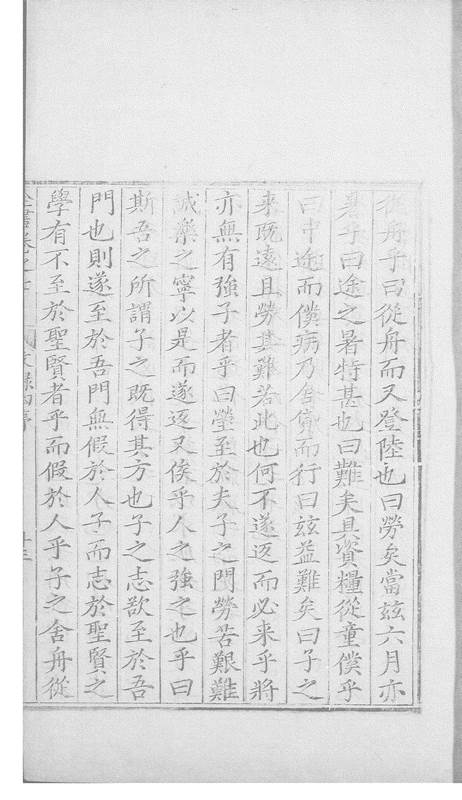 從舟乎曰從舟而又登陸也曰勞矣當茲六月亦
暑乎曰途之暑特甚也曰難矣具資糧從童僕乎
曰中途而僕病乃舍貸而行曰茲益難矣曰子之
來既遠且勞其難若此也何不遂返而必来乎將
亦無有強子者乎曰瑩至於夫子之門勞苦艱難
誠樂之寧以是而遂返又俟乎人之強之也乎曰
斯吾之所謂子之既得其方也子之志欲至於吾
門也則遂至於吾門無假於人子而志於聖賢之
學有不至於聖賢者乎而假於人乎子之舍舟從
文錄四序